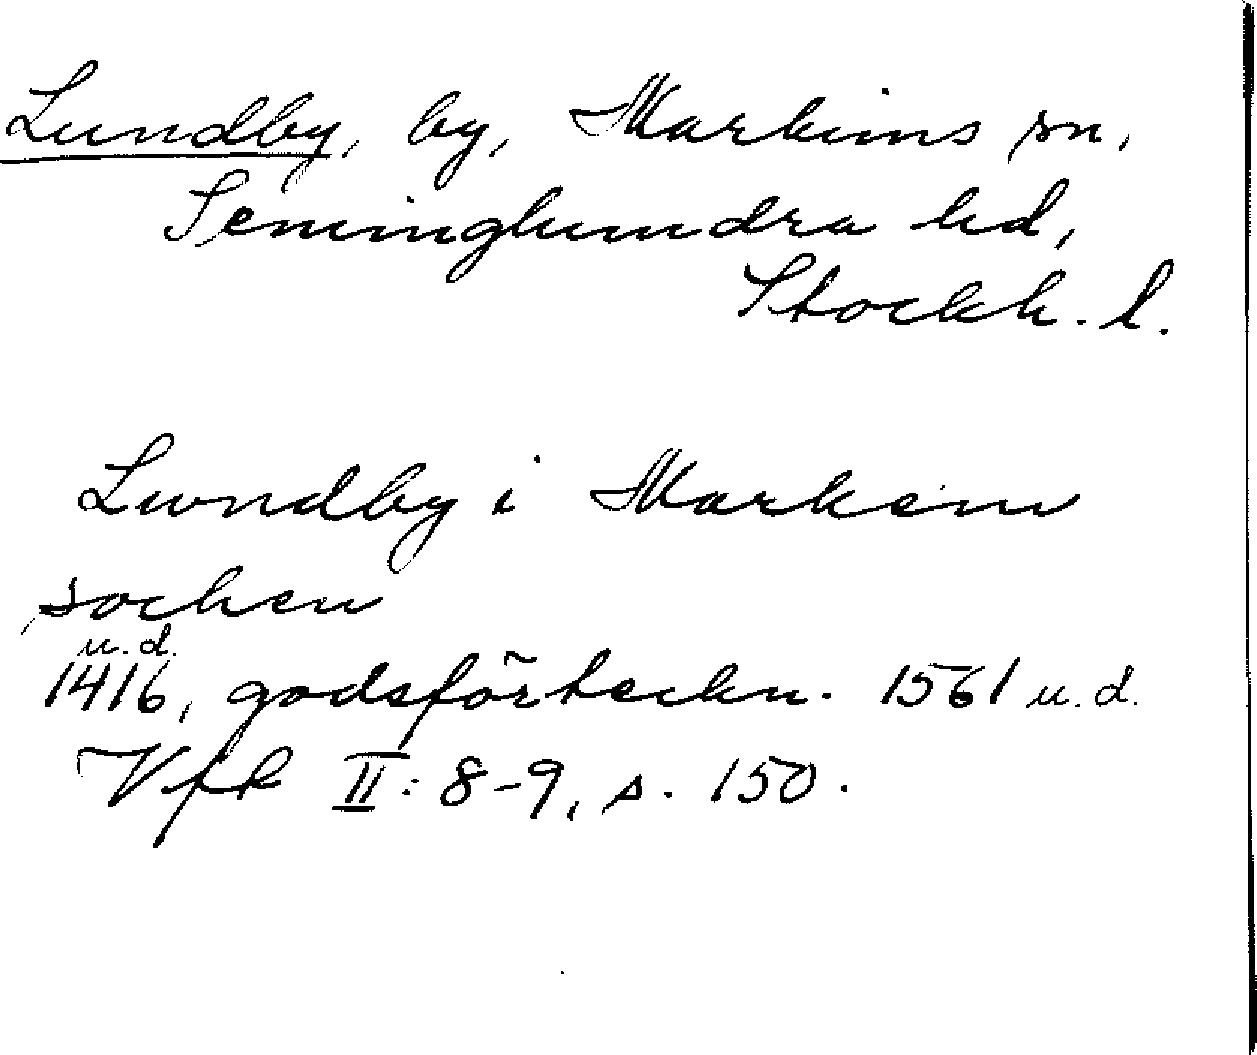 Lundby, by, Markims sn,
Seminghundra hd,
Stockh. l.
Lwndby i Markem
sochen
u. d.
1416, godsförteckn. 1561 u. d.
Vfk II: 8-9, s. 150.